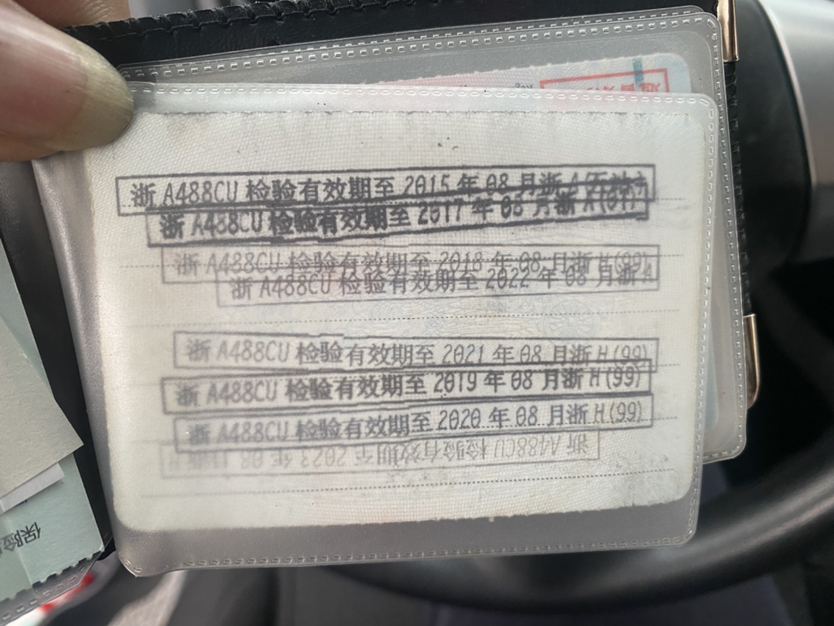 浙 A488CU 检验有效期至 2015 年 08 月浙 A
浙 A488CU 检验有效期至 2017 年 08 月浙 A(01)
浙 A488CU 检验有效期至 2018 年 08 月浙 H(99)
浙 A488CU 检验有效期至 2022 年 08 月浙 A
浙 A488CU 检验有效期至 2021 年 08 月浙 H(99)
浙 A488CU 检验有效期至 2019 年 08 月浙 H(99)
浙 A488CU 检验有效期至 2020 年 08 月浙 H(99)
浙 A488CU 检验有效期至 2023 年 08 月浙
保险